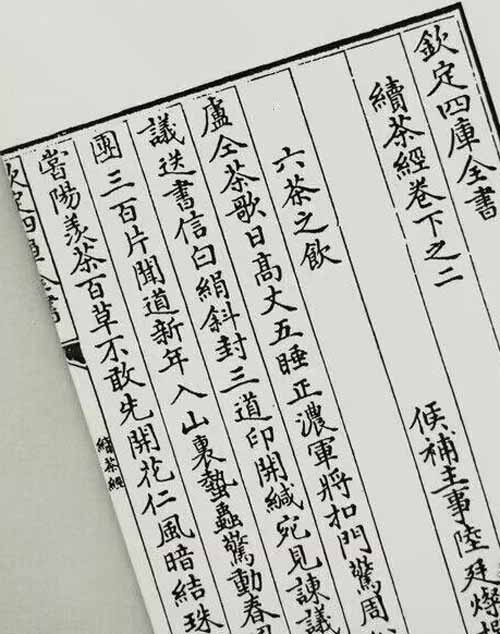 欽定四庫全書
續茶經卷下之二
候補主事陸廷燦
六茶之飲
盧仝茶歌日高丈五睡正濃軍將扣門驚周
議送書信白絹斜封三道印開緘宛見諫議
團三百片聞道新年入山裏蟄蟲驚動春
嘗陽羨茶百草不敢先開花仁風暗結珠
續茶經